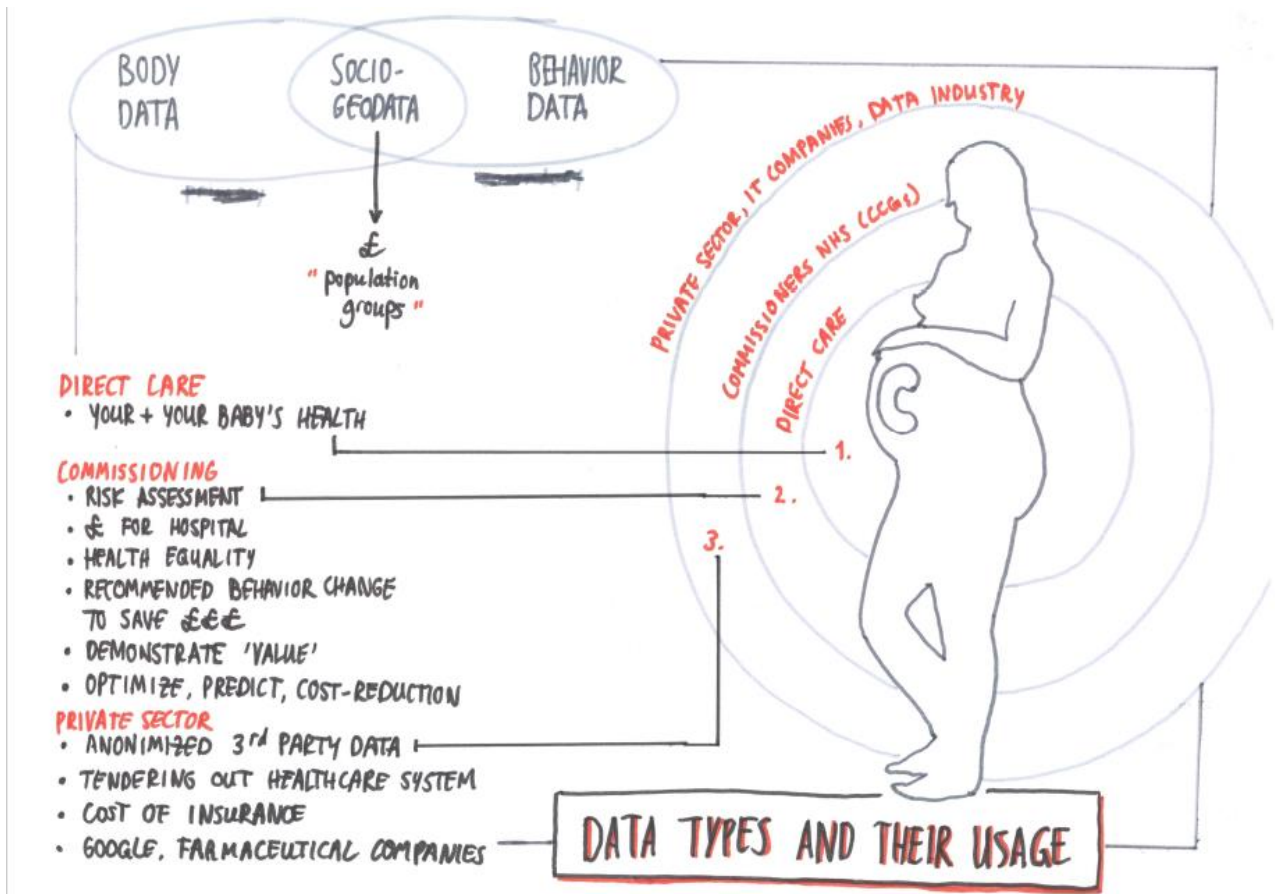 BODY
DATA
SOCIO-
GEODATA
BEHAVIOR
DATA
£
"population
groups"
PRIVATE SECTOR, IT COMPANIES, DATA INDUSTRY
COMMISSIONERS NHS (CCGs)
DIRECT CARE
1.
2.
3.
DIRECT CARE
• YOUR + YOUR BABY'S HEALTH
COMMISSIONING
• RISK ASSESSMENT
• £ FOR HOSPITAL
• HEALTH EQUALITY
• RECOMMENDED BEHAVIOR CHANGE
TO SAVE £££
• DEMONSTRATE 'VALUE'
• OPTIMIZE, PREDICT, COST-REDUCTION
PRIVATE SECTOR
• ANONIMIZED 3rd PARTY DATA
• TENDERING OUT HEALTHCARE SYSTEM
• COST OF INSURANCE
• GOOGLE, FARMACEUTICAL COMPANIES
DATA TYPES AND THEIR USAGE